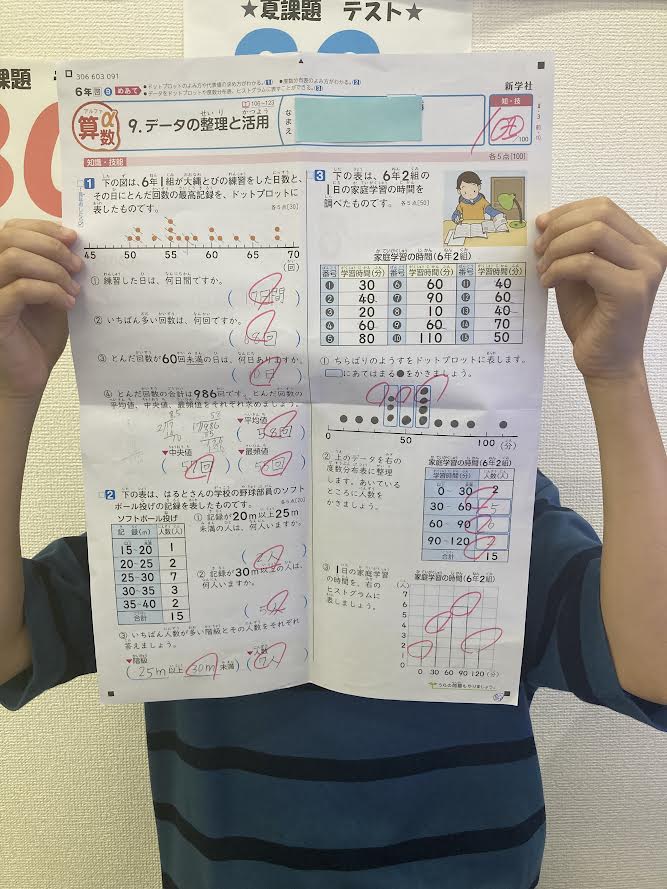 ★夏課題 テスト★
課題
306 603 091
6年 9 めあて
●ドットプロットのよみ方や代表値の求め方がわかる。(1) ●度数分布表のよみ方がわかる。(2)
●データをドットプロットや度数分布表、ヒストグラムに表すことができる。(3)
新学社
アルファ
算α数
9.データの整理と活用
106~123
なまえ
知・技
100
知識・技能
各5点[100]
1 下の図は、6年1組が大縄とびの練習をした日数と、
その日にとんだ回数の最高記録を、ドットプロットに
表したものです。
各5点[30]
45 50 55 60 65 70
(回)
① 練習した日は、何日間ですか。
② いちばん多い回数は、何回ですか。
③ とんだ回数が60回未満の日は、何日ありますか。
④ とんだ回数の合計は986回です。とんだ回数の
平均値、中央値、最頻値をそれぞれ求めましょう。
▼平均値
▼中央値 ▼最頻値
2 下の表は、はるとさんの学校の野球部員のソフト
ボール投げの記録を表したものです。
各5点[20]
ソフトボール投げ
記録(m) 人数(人)
15~20 1
20~25 2
25~30 7
30~35 3
35~40 2
合計 15
① 記録が20m以上25m
未満の人は、何人いますか。
② 記録が30m以上の人は、
何人いますか。
③ いちばん人数が多い階級とその人数をそれぞれ
答えましょう。
▼階級 ▼人数
(25m以上 30m未満) (7人)
3 下の表は、6年2組の
1日の家庭学習の時間を
調べたものです。
各5点[50]
家庭学習の時間(6年2組)
番号 学習時間(分) 番号 学習時間(分) 番号 学習時間(分)
1 30 6 60 11 40
2 40 7 90 12 60
3 20 8 10 13 40
4 60 9 60 14 70
5 80 10 110 15 50
① ちらばりのようすをドットプロットに表します。
にあてはまる●をかきましょう。
0 50 100 (分)
② 上のデータを右の
度数分布表に整理
します。あいている
ところに人数を
かきましょう。
家庭学習の時間(6年2組)
学習時間(分) 人数(人)
0~30 2
30~60 5
60~90 6
90~120
合計 15
③ 1日の家庭学習
の時間を、右の
ヒストグラムに
表しましょう。
家庭学習の時間(6年2組)
(人)
7
6
5
4
3
2
1
0
0 30 60 90 120 (分)
うらの問題もやりましょう。